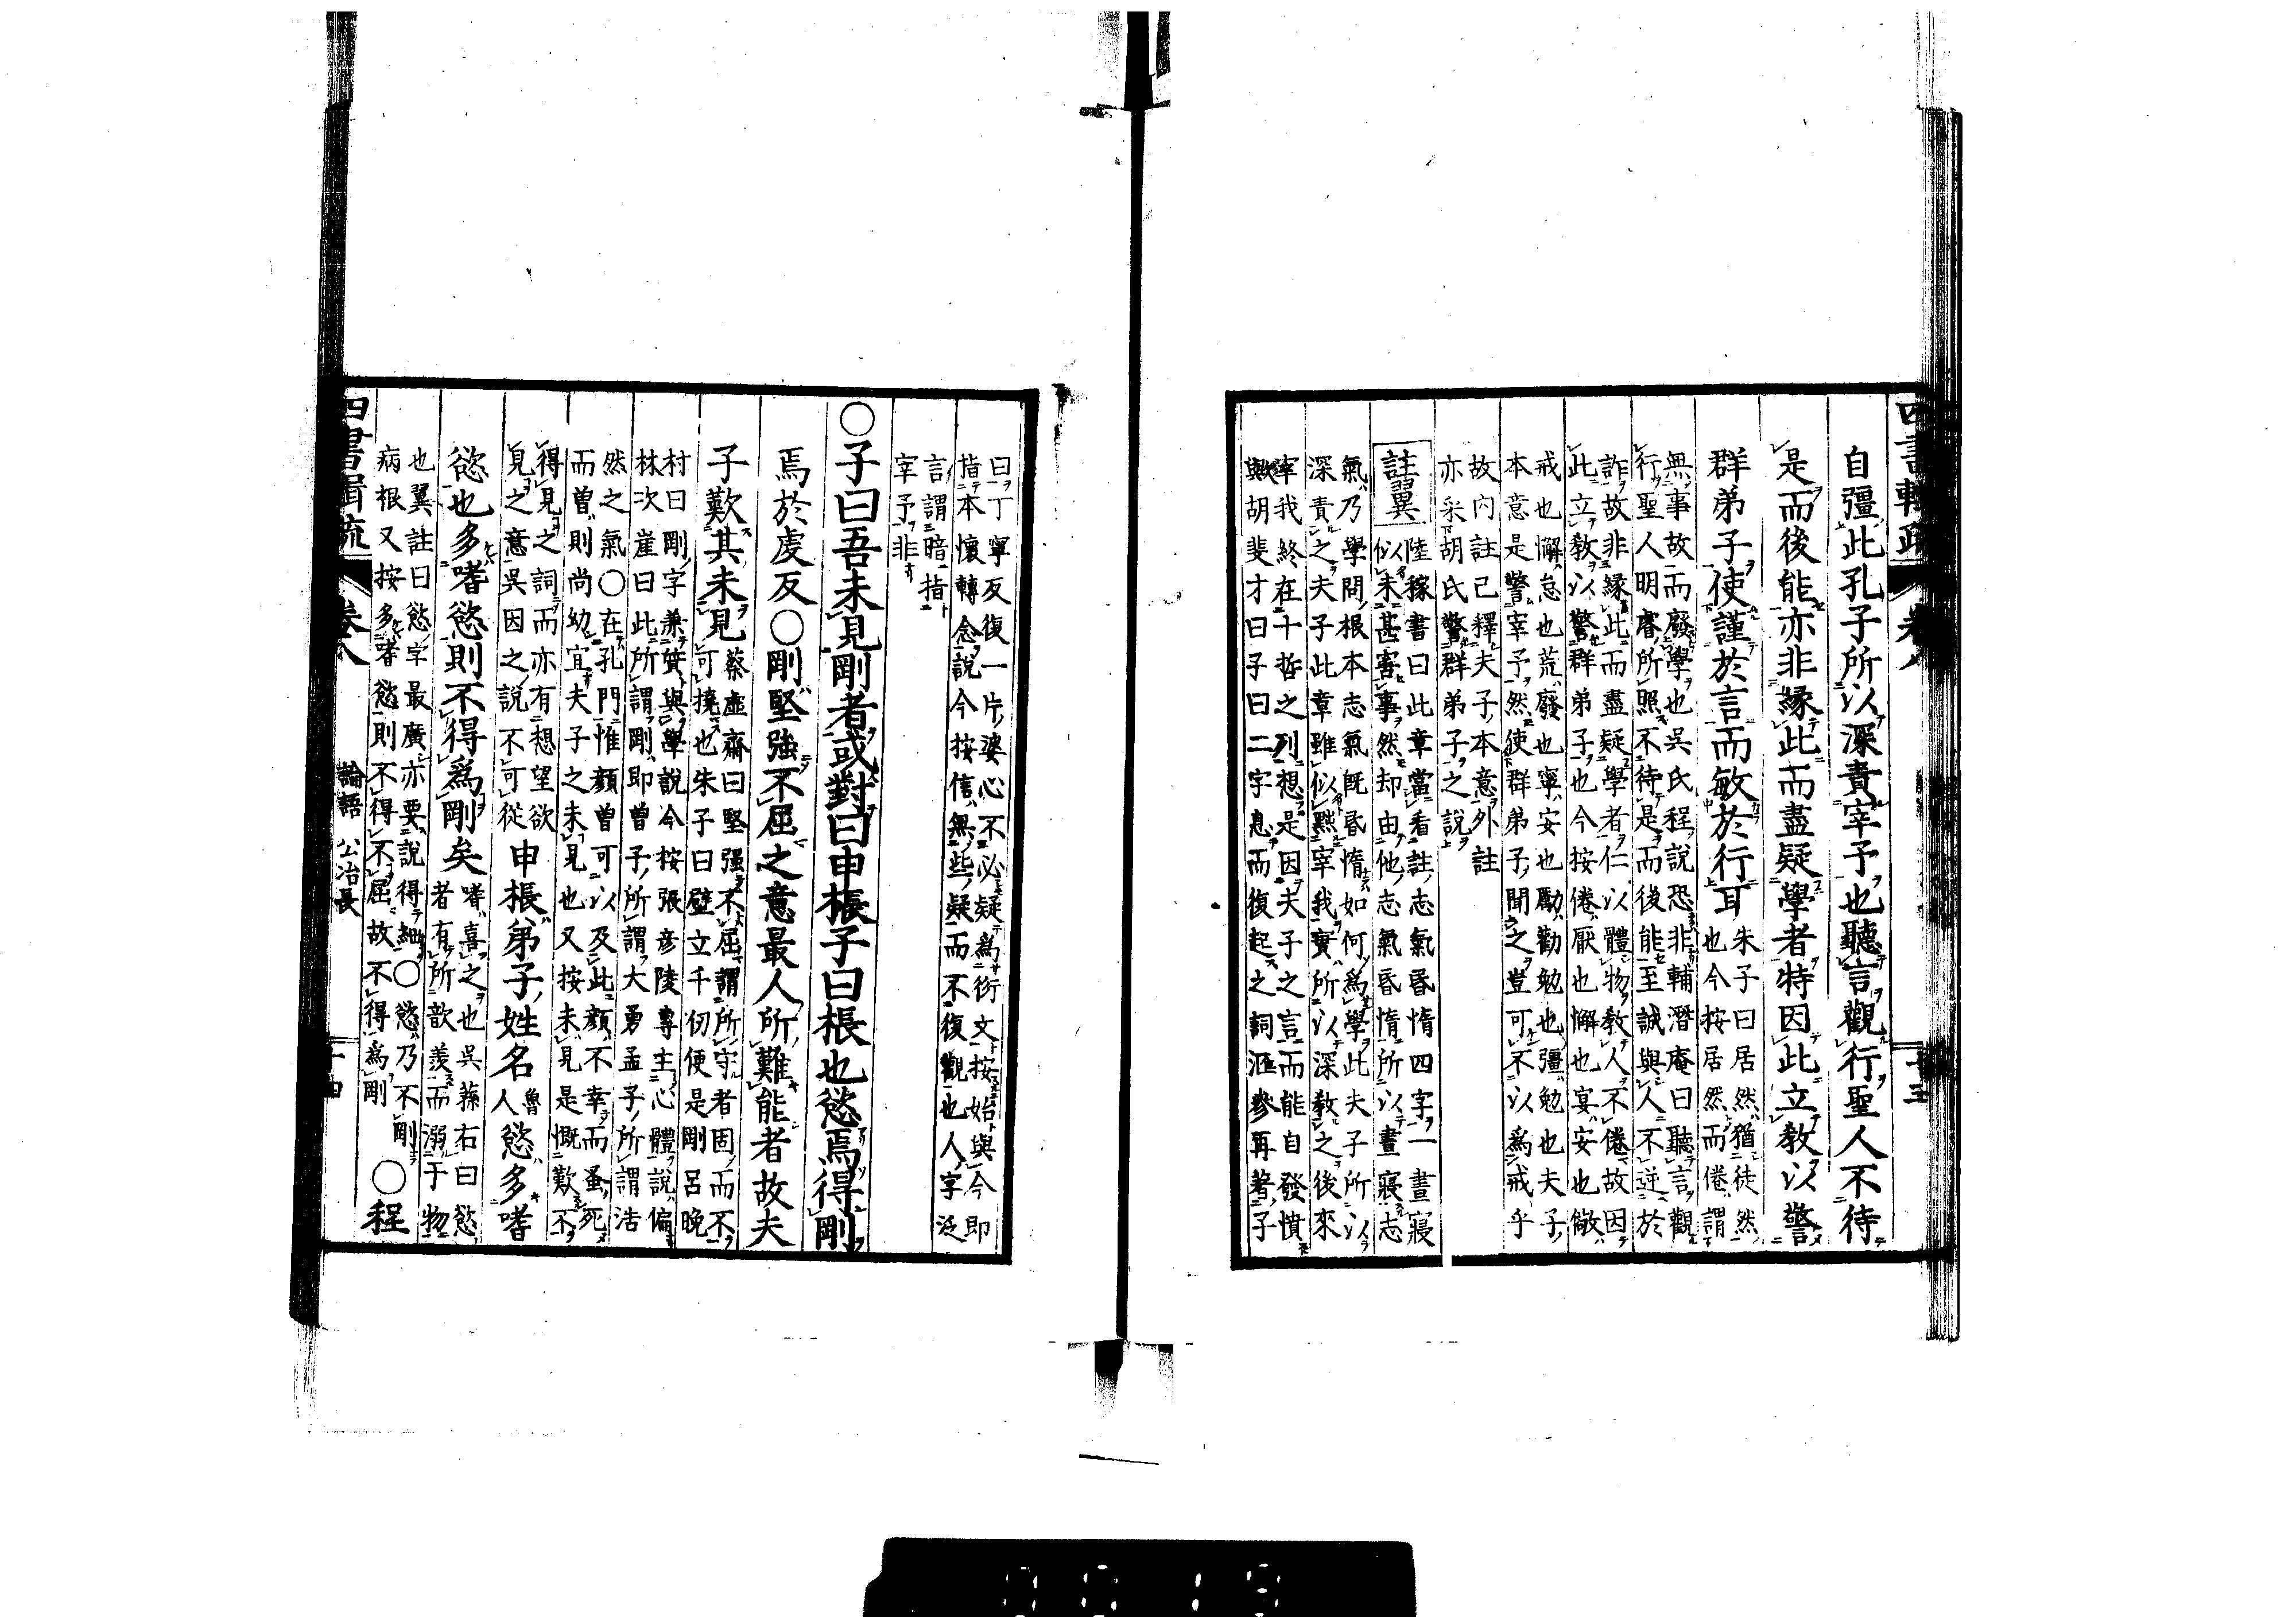 四書輯疏 卷八 十三
自彊此孔子所以深責宰予也聽言觀行聖人不待
是而後能亦非緣此而盡疑學者特因此立教以警
群弟子使謹於言而敏於行耳
朱子曰居然猶徒然
也今按居然而倦謂
無事故而廢學也吳氏程說恐非輔潛庵曰聽言觀
行聖人明睿所照不待是而後能至誠與人不逆於
詐故非緣此而盡疑學者仁以體物教人不倦故因
此立教以警群弟子也今按倦厭也懈也宴安也儆
戒也懈怠也荒廢也寧安也勵勸勉也彊勉也夫子
本意是警宰予然使群弟子聞之豈可不以為戒乎
故內註已釋夫子本意外註
亦采胡氏警群弟子之說
註翼
陸稼書曰此章當看註志氣昏惰四字一晝寢
似未甚害事然却由他志氣昏惰所以晝寢志
氣乃學問根本志氣既昏惰如何為學此夫子所以
深責之夫子此章雖似黜宰我實所以深教之後來
宰我終在十哲之列想是因夫子之言而能自發憤
歟胡斐才曰子曰二字息而復起之詞滙參再著子
曰丁寧反復一片婆心不必疑為衍文按始與今即
指本懷轉念說今按信無些疑而不復觀也人字泛
言謂暗指
宰予非
○子曰吾未見剛者或對曰申棖子曰棖也慾焉得剛
焉於虔反○剛堅強不屈之意最人所難能者故夫
子歎其未見
蔡虛齋曰堅强不屈謂所守者固而不
可撓也朱子曰壁立千仞便是剛呂晚
村曰剛字兼質與學說今按張彥陵專主心體說偏
林次崖曰此所謂剛即曾子所謂大勇孟子所謂浩
然之氣○在孔門惟顏曾可以及此顏不幸而蚤死
而曾則尚幼宜夫子之未見也又按未見是慨歎不
得見之詞而亦有想望欲
見之意吳因之說不可從
申棖弟子姓名
魯
人
慾多嗜
慾也多嗜慾則不得為剛矣
嗜喜之也吳蓀右曰慾
者有所歆羨而溺于物
也翼註曰慾字最廣亦要說得細○慾乃不剛
病根又按多嗜慾則不得不屈故不得為剛
○程
四書輯疏 卷八 論語 公冶長 十四
00 19